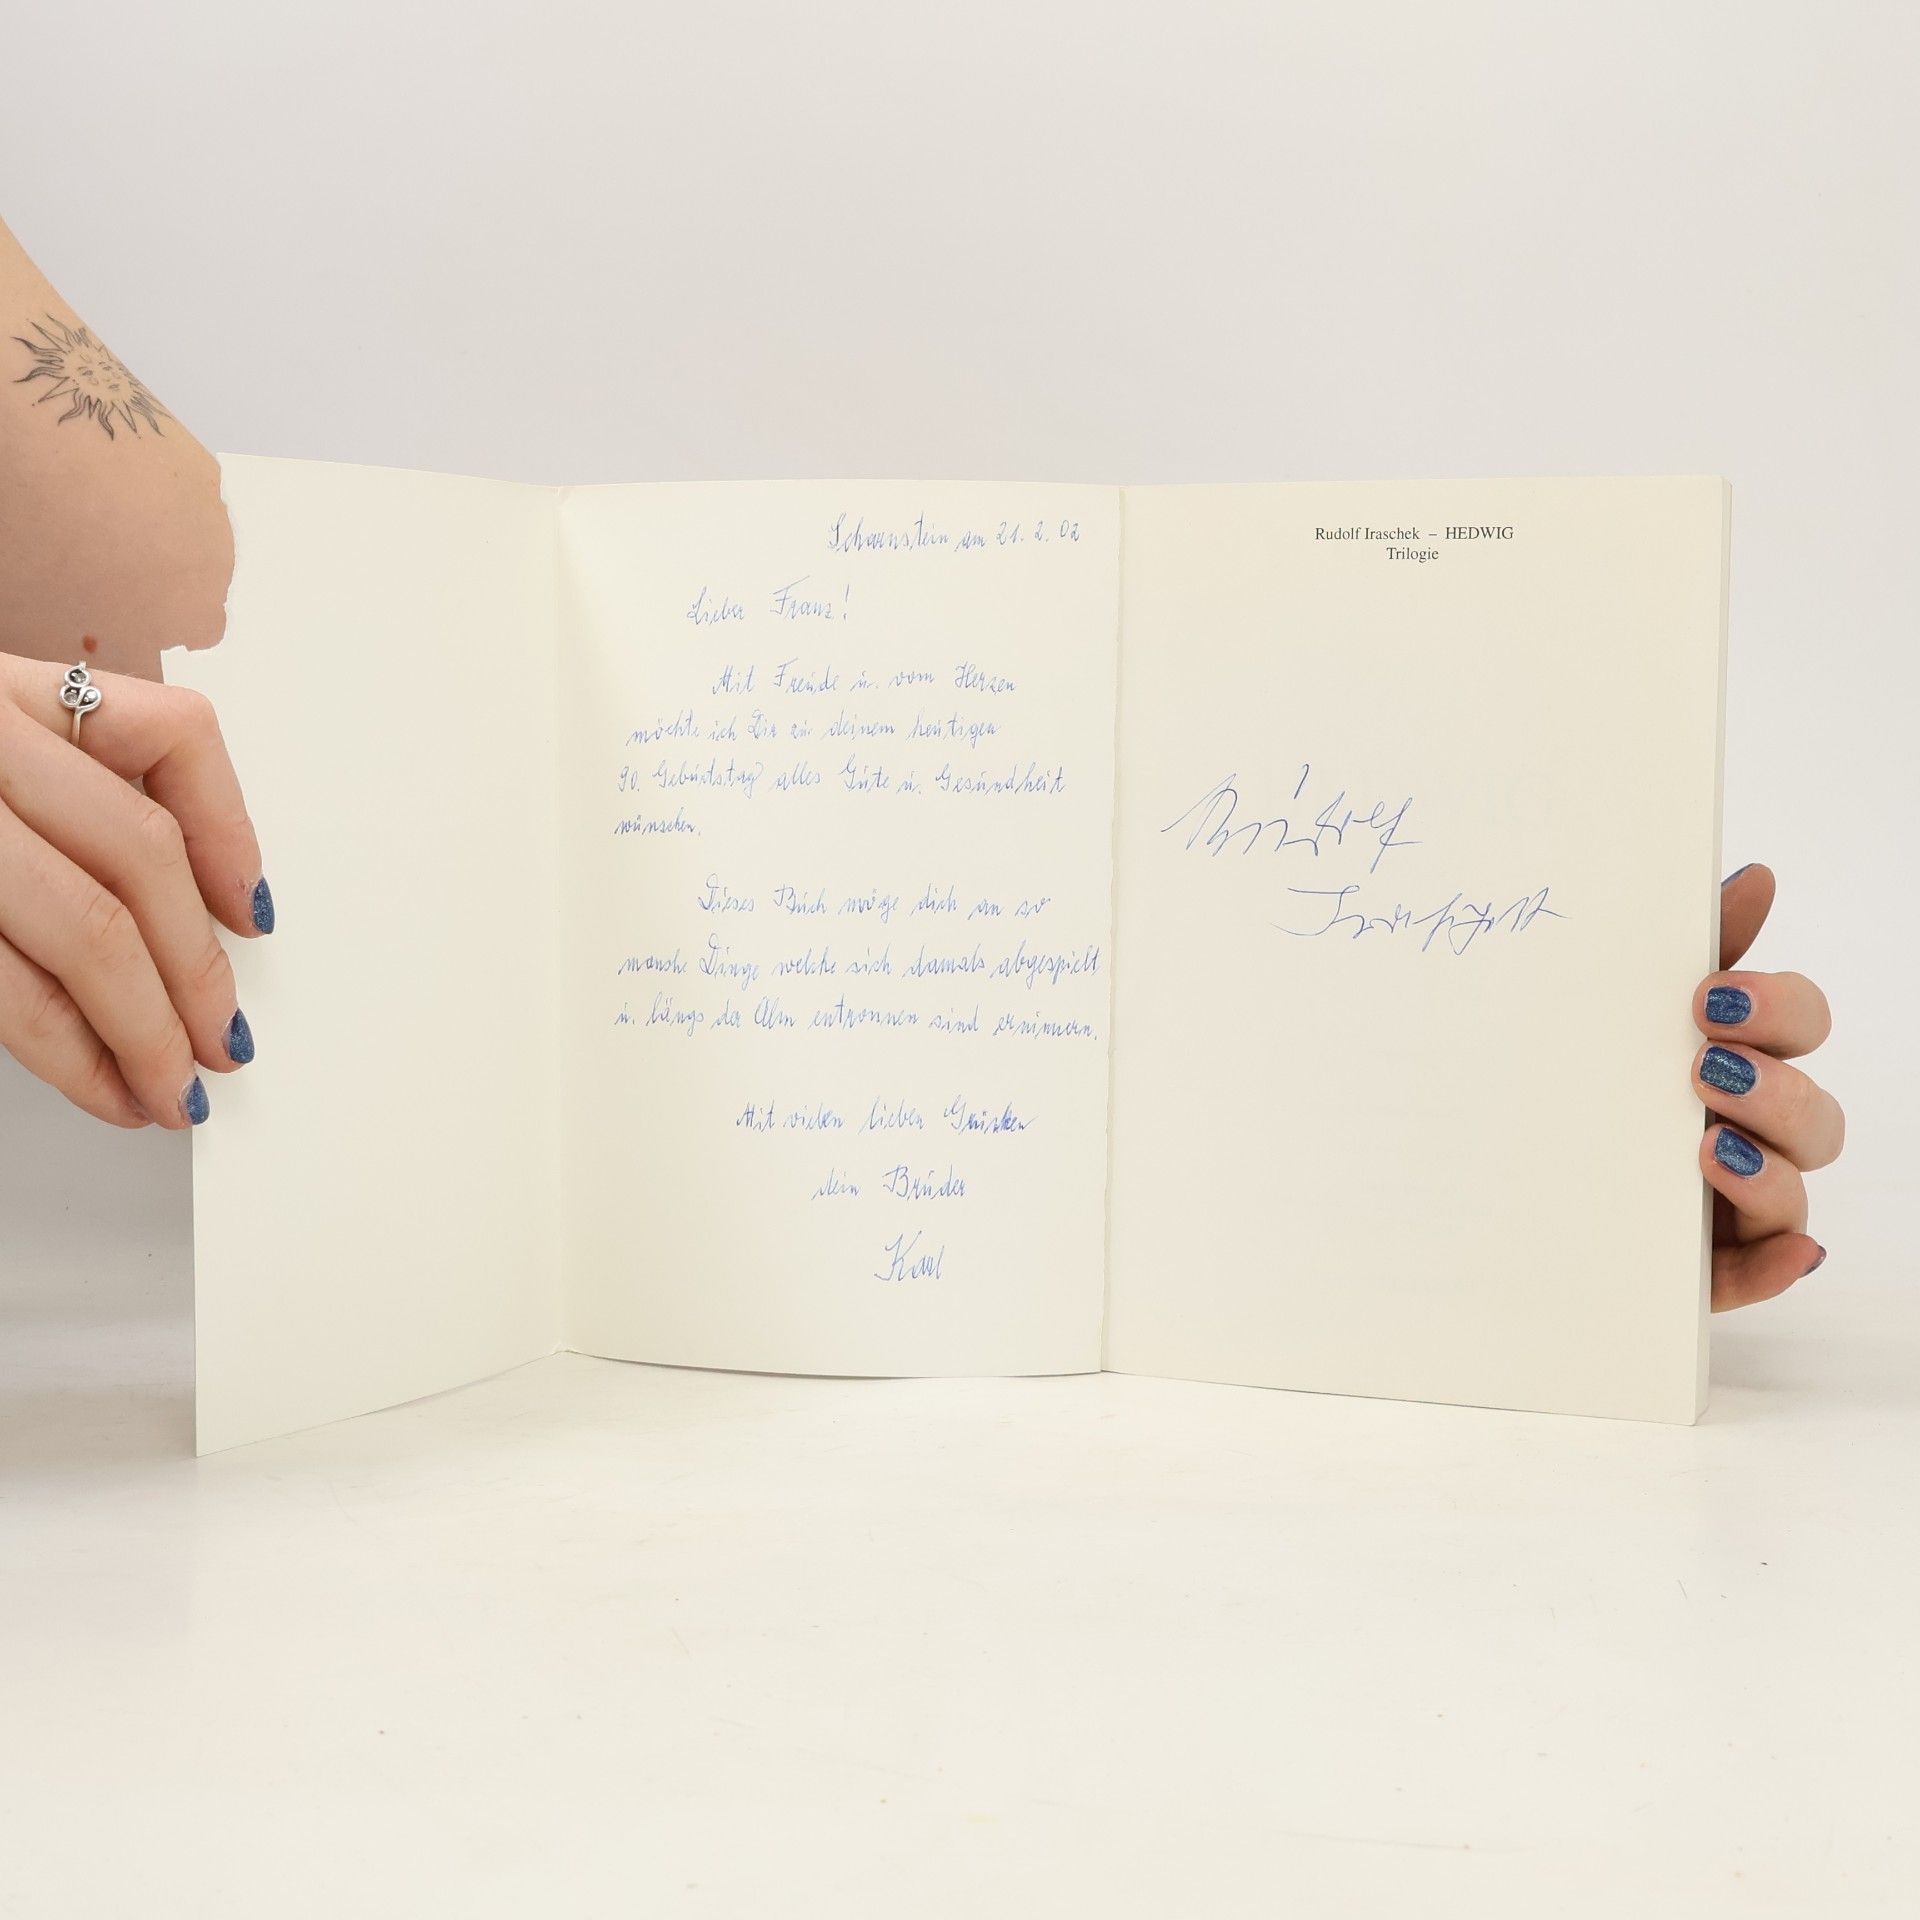 Scharnstein am 21. 2. 02
Lieber Franz!
Mit Freude u. vom Herzen
möchte ich Dir zu deinem heutigen
90. Geburtstag alles Gute u. Gesundheit
wünschen.
Dieses Buch möge dich an so
manche Dinge welche sich damals abgespielt
u. längs der Alm entronnen sind erinnern.
Mit vielen lieben Grüßen
dein Bruder
Karl
Rudolf Iraschek – HEDWIG
Trilogie
Rudolf
Iraschek